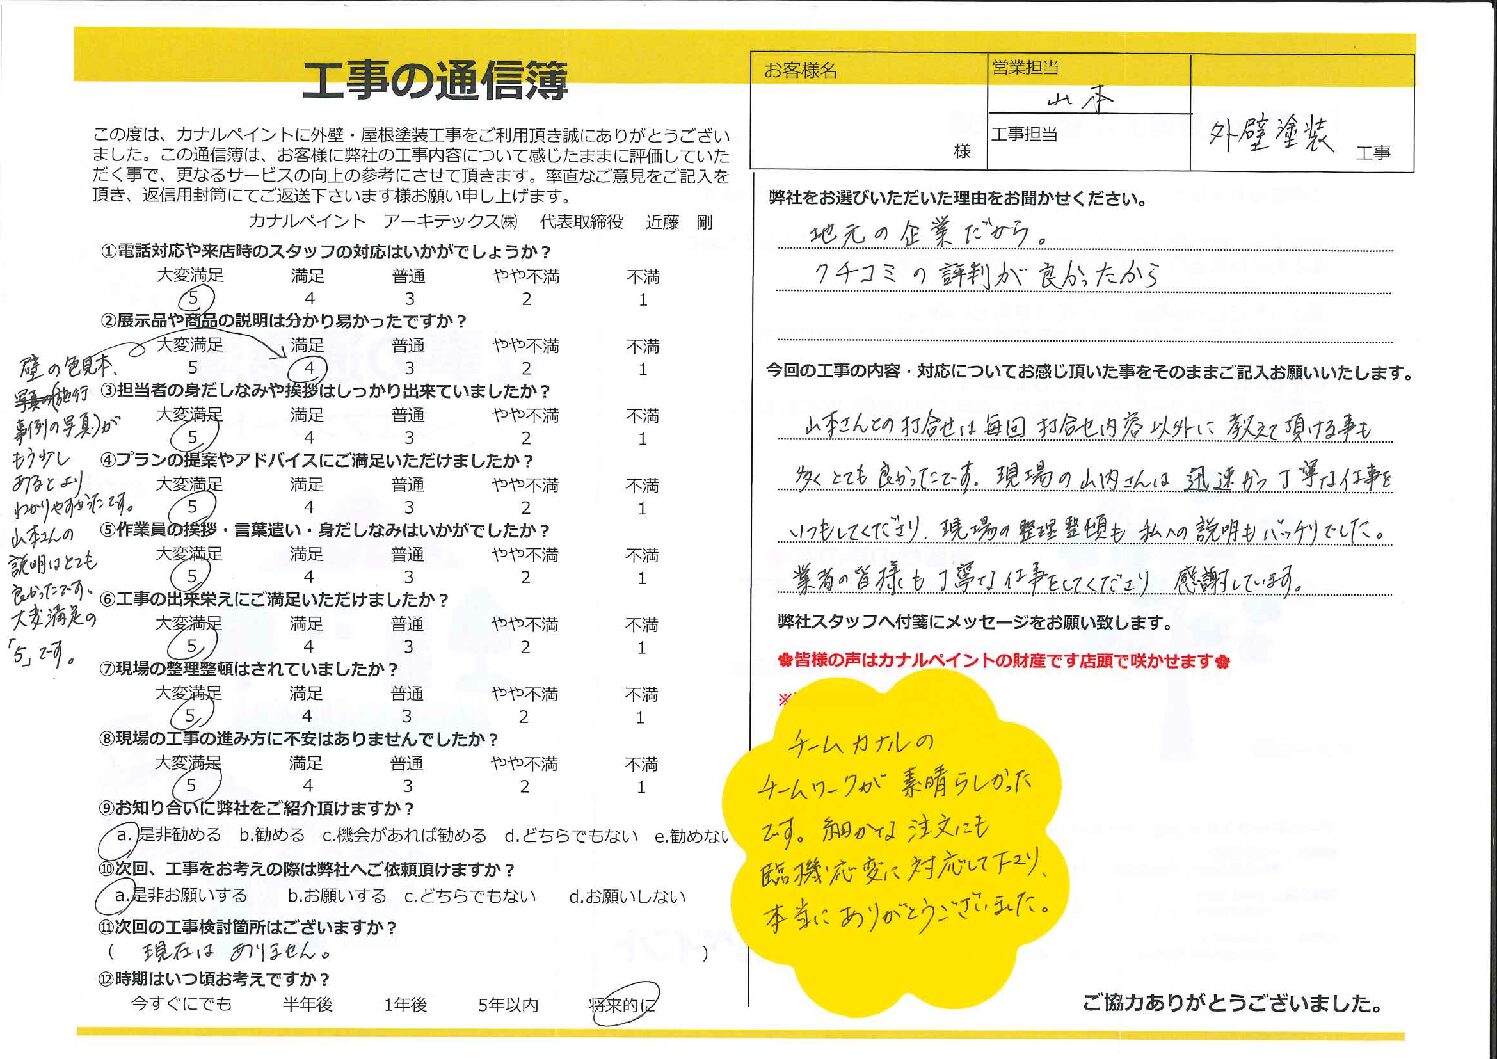 工事の通信簿
この度は、カナルペイントに外壁・屋根塗装工事をご利用頂き誠にありがとうござい
ました。この通信簿は、お客様に弊社の工事内容について感じたままに評価していた
だく事で、更なるサービスの向上の参考にさせて頂きます。率直なご意見をご記入を
頂き、返信用封筒にてご返送下さいます様お願い申し上げます。
カナルペイント アーキテックス㈱ 代表取締役 近藤 剛
①電話対応や来店時のスタッフの対応はいかがでしょうか？
大変満足 満足 普通 やや不満 不満
5 4 3 2 1
②展示品や商品の説明は分かり易かったですか？
大変満足 満足 普通 やや不満 不満
5 4 3 2 1
③担当者の身だしなみや挨拶はしっかり出来ていましたか？
大変満足 満足 普通 やや不満 不満
5 4 3 2 1
④プランの提案やアドバイスにご満足いただけましたか？
大変満足 満足 普通 やや不満 不満
5 4 3 2 1
⑤作業員の挨拶・言葉遣い・身だしなみはいかがでしたか？
大変満足 満足 普通 やや不満 不満
5 4 3 2 1
⑥工事の出来栄えにご満足いただけましたか？
大変満足 満足 普通 やや不満 不満
5 4 3 2 1
⑦現場の整理整頓はされていましたか？
大変満足 満足 普通 やや不満 不満
5 4 3 2 1
⑧現場の工事の進み方に不安はありませんでしたか？
大変満足 満足 普通 やや不満 不満
5 4 3 2 1
⑨お知り合いに弊社をご紹介頂けますか？
a.是非勧める b.勧める c.機会があれば勧める d.どちらでもない e.勧めない
⑩次回、工事をお考えの際は弊社へご依頼頂けますか？
a.是非お願いする b.お願いする c.どちらでもない d.お願いしない
⑪次回の工事検討箇所はございますか？
( 現在は ありません。 )
⑫時期はいつ頃お考えですか？
今すぐにでも 半年後 1年後 5年以内 将来的に
壁の色見本、
写真の(施行
事例の写真)が
もう少し
あるとより
わかりやすかったです。
山本さんの
説明はとても
良かったです、
大変満足の
「5」です。
お客様名
様
営業担当
山本
工事担当
外壁塗装 工事
弊社をお選びいただいた理由をお聞かせください。
地元の企業だから。
クチコミの評判が良かったから
今回の工事の内容・対応についてお感じ頂いた事をそのままご記入お願いいたします。
山本さんとの打合せは毎回打合せ内容以外に教えて頂ける事も
多くとても良かったです。現場の山内さんは迅速かつ丁寧な仕事を
いつもしてくださり、現場の整理整頓も私への説明もバッチリでした。
業者の皆様も丁寧な仕事をしてくださり感謝しています。
弊社スタッフへ付箋にメッセージをお願い致します。
✿皆様の声はカナルペイントの財産です店頭で咲かせます✿
※
チームカナルの
チームワークが素晴らしかった
です。細かな注文にも
臨機応変に対応して下さり、
本当にありがとうございました。
ご協力ありがとうございました。